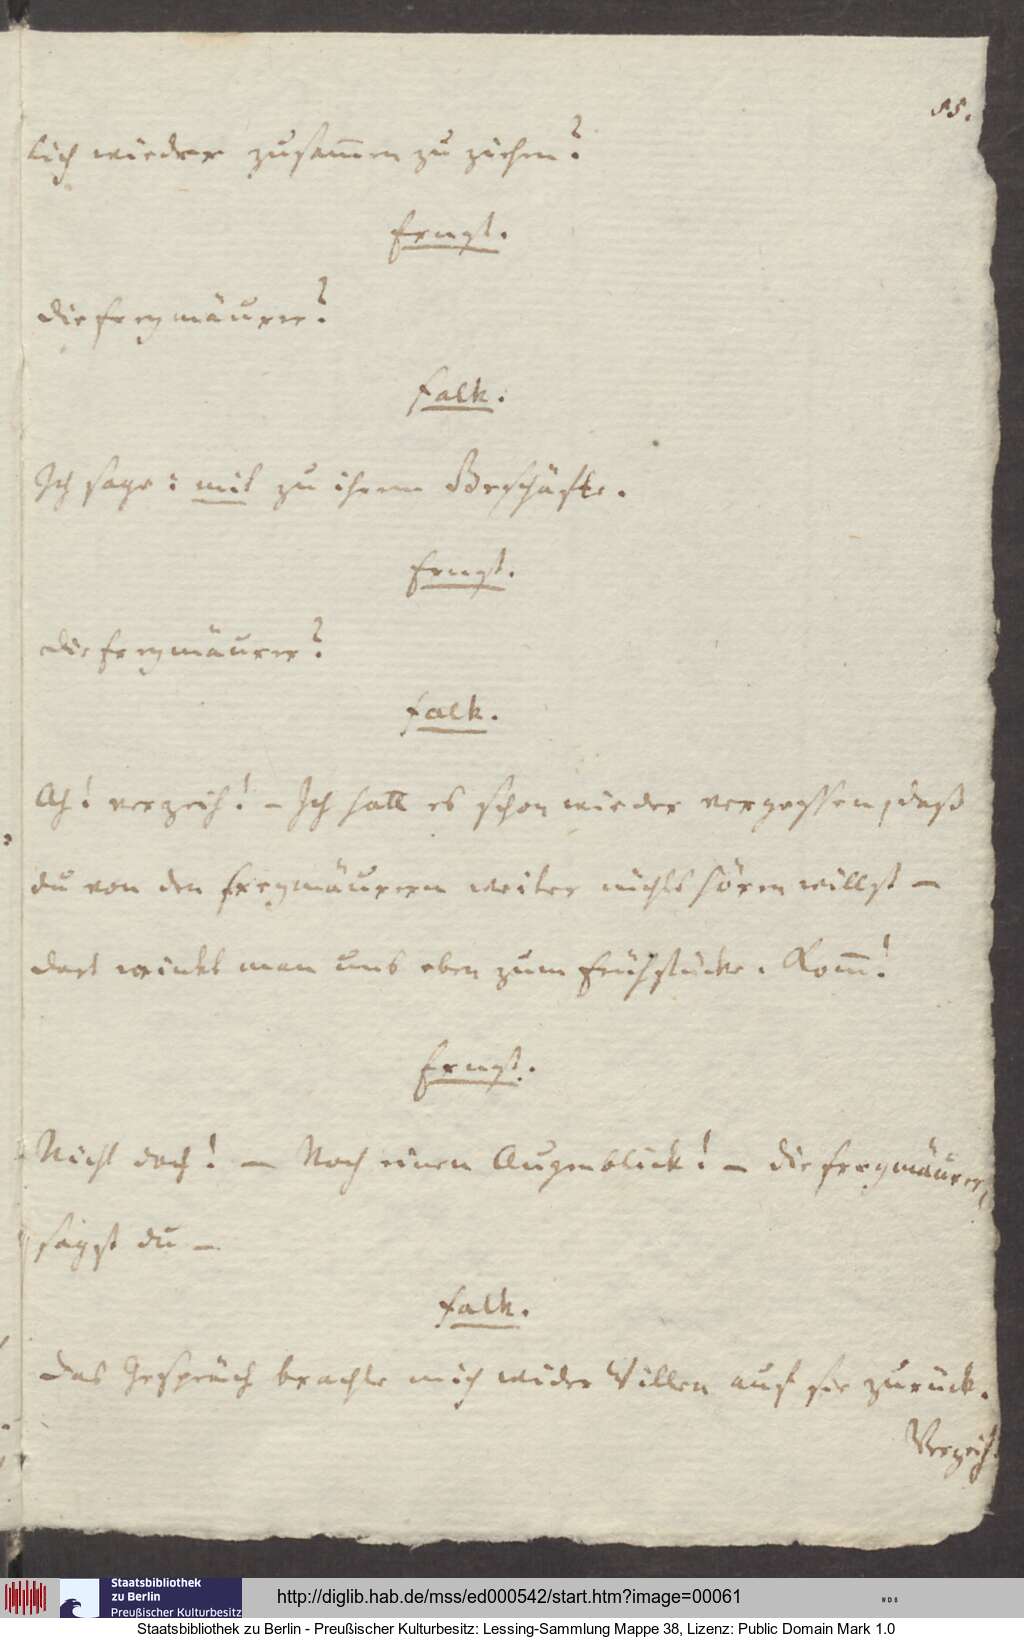 55.
lich wieder zusam̄en zu ziehen?
Ernst.
die freymäurer?
Falk.
Ich sage: mit zu ihrem Geschäfte.
Ernst.
die freymäurer?
Falk.
Ah! verzeih! – Ich hatt es schon wieder vergessen, daß
du von den freymäurern weiter nichts hören willst –
dort winkt man uns eben zum Frühstücke. Kom̄!
Ernst.
Nicht doch! – Noch einen Augenblick! – die freymäurer,
sagst du –
Falk.
das Gespräch brachte mich wider Willen auf sie zurück.
Verzeih!
Staatsbibliothek
zu Berlin
Preußischer Kulturbesitz
http://diglib.hab.de/mss/ed000542/start.htm?image=00061
Staatsbibliothek zu Berlin - Preußischer Kulturbesitz: Lessing-Sammlung Mappe 38, Lizenz: Public Domain Mark 1.0